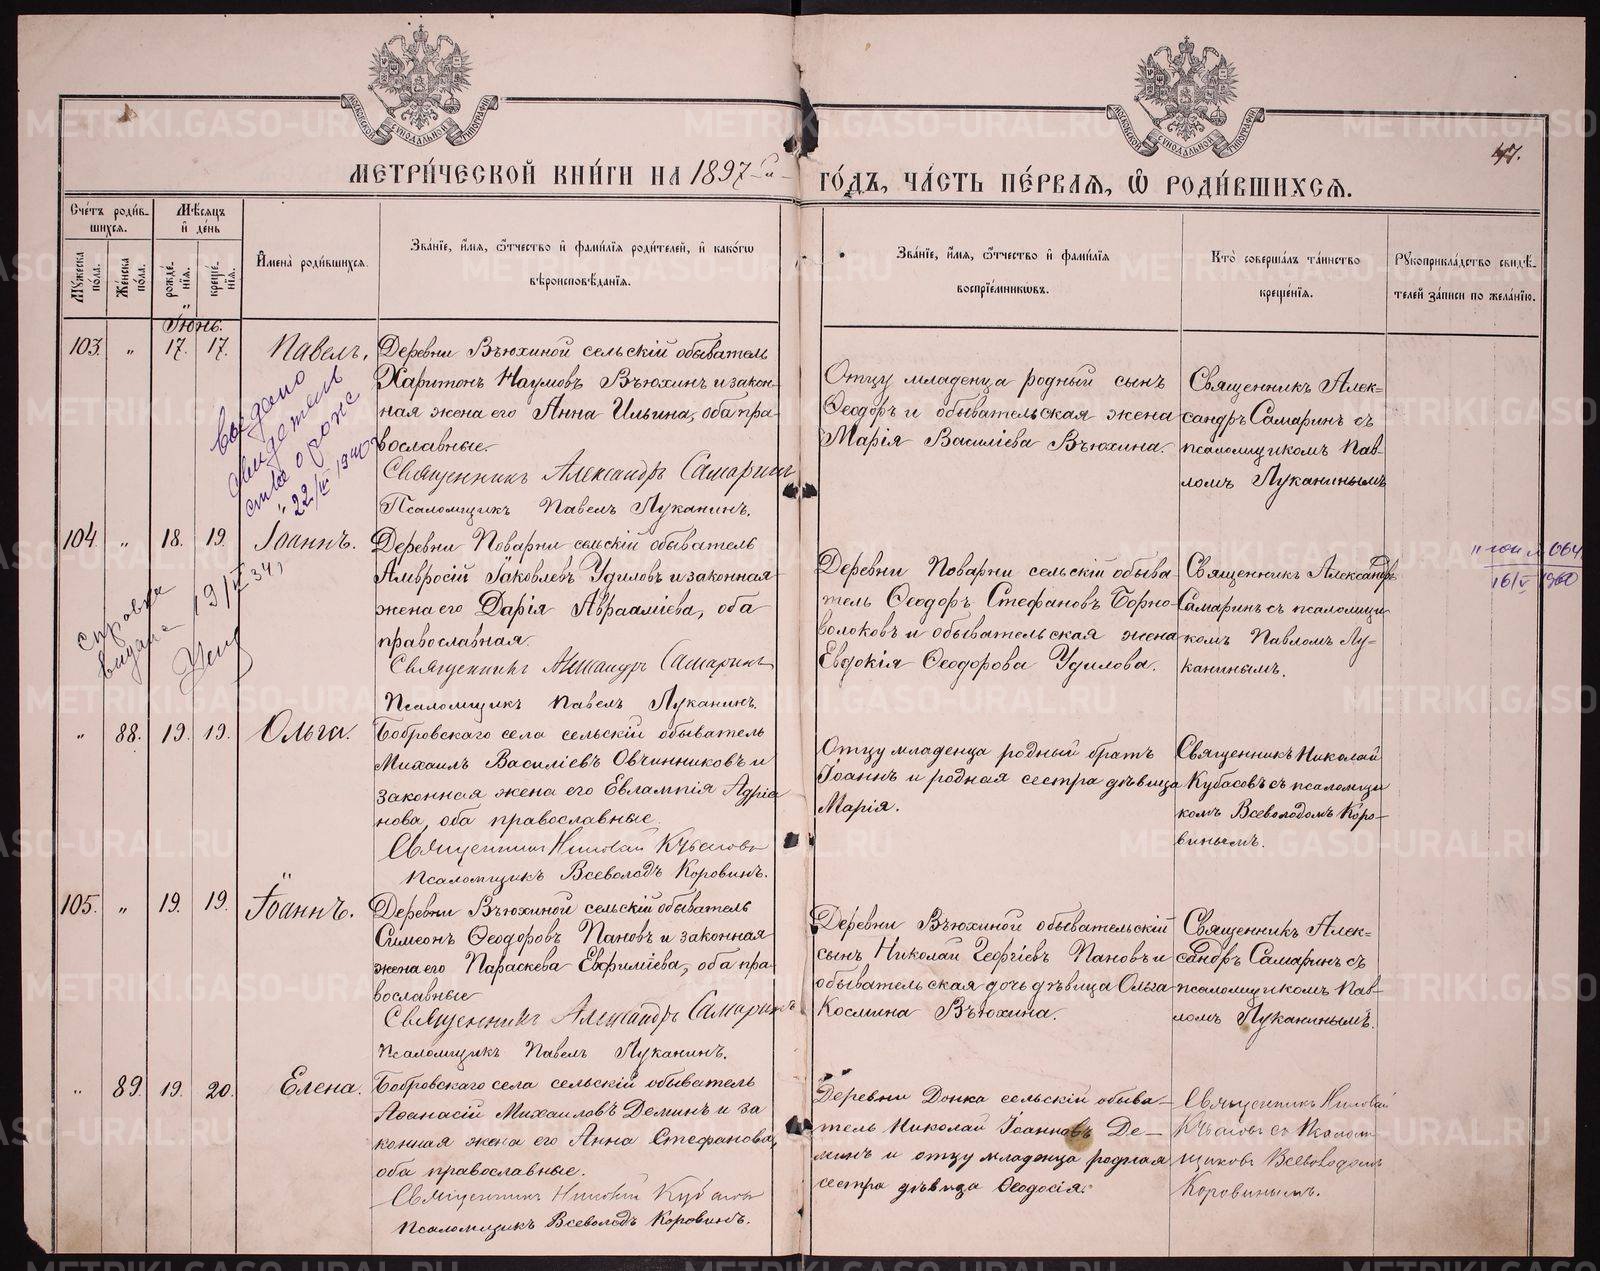 МОСКОВСКОЙ СѴНОДАЛЬНОЙ ТИПОГРАФІИ
МОСКОВСКОЙ СѴНОДАЛЬНОЙ ТИПОГРАФІИ
47.
МЕТРИ́ЧЕСКОЙ КНИ́ГИ НА 1897-й ГО́ДЪ, ЧА́СТЬ ПЕ́РВАЯ, Ѡ РОДИ́ВШИХСЯ.
Счётъ роди́в-
шихся.
Мѣ́сяцъ
и҆ де́нь
Мꙋ́жеска по́ла.
Же́нска по́ла.
рожде́нїя.
креще́нїя.
И҆мена̀ роди́вшихся.
Зва́нїе, и҆́мя, ѻ҆́тчество и҆ фами́лїя роди́телей, и҆ како́гѡ
вѣроисповѣ́данїя.
Зва́нїе, и҆́мя, ѻ҆́тчество и҆ фами́лїя
воспрїе́мникѡвъ.
Кто̀ соверша́лъ та́инство
креще́нїя.
Рꙋкоприкла́дство свидѣ́-
телей за́писи по жела́нїю.
Іюнь.
103. " 17. 17. Павелъ.
Деревни Вьюхиной сельскій обыватель
Харитонъ Наумовъ Вьюхинъ и закон-
ная жена его Анна Ильина, оба пра-
вославные.
Священникъ Александръ Самаринъ
Псаломщикъ Павелъ Луканинъ.
Отцу младенца родный сынъ
Ѳеодоръ и обывательская жена
Марія Василіева Вьюхина.
Священникъ Алек-
сандръ Самаринъ съ
псаломщикомъ Пав-
ломъ Луканинымъ
выдано
свидетель
ство о рожс
22/III 1940
104. " 18. 19. Іоаннъ.
Деревни Поварни сельскій обыватель
Амвросій Іаковлевъ Удиловъ и законная
жена его Дарія Авраамiева, оба
православная.
Священникъ Александръ Самаринъ
Псаломщикъ Павелъ Луканинъ.
Деревни Поварни сельскій обыва
тель Ѳеодоръ Стефановъ Борно-
волоковъ и обывательская жена
Евдокія Ѳеодорова Удилова.
Священникъ Александръ
Самаринъ съ псаломщи
комъ Павломъ Лу-
канинымъ.
справка
выдана 19/II 34
16/V 1960
" 88. 19. 19. Ольга.
Бобровскаго села сельскій обыватель
Михаилъ Василіевъ Овчинниковъ и
законная жена его Евлампія Адріа
нова, оба православные.
Священникъ Николай Кубасовъ
Псаломщикъ Всеволодъ Коровинъ.
Отцу младенца родный братъ
Іоаннъ и родная сестра дѣвица
Марія.
Священникъ Николай
Кубасовъ съ псаломщи
комъ Всеволодомъ Коро-
винымъ.
105. " 19. 19. Іоаннъ.
Деревни Вьюхиной сельскій обыватель
Симеонъ Ѳеодоровъ Пановъ и законная
жена его Параскева Евфиміева, оба пра-
вославные
Священникъ Александръ Самаринъ
Псаломщикъ Павелъ Луканинъ.
Деревни Вьюхиной обывательскій
сынъ Николай Георгіевъ Пановъ и
обывательская дочь дѣвица Ольга
Космина Вьюхина.
Священникъ Алек-
сандръ Самаринъ съ
псаломщикомъ Пав-
ломъ Луканинымъ.
" 89. 19. 20. Елена.
Бобровскаго села сельскій обыватель
Аѳанасій Михаиловъ Деминъ и за
конная жена его Анна Стефанова,
оба православные.
Священникъ Николай Кубасовъ
Псаломщикъ Всеволодъ Коровинъ.
Деревни Донка сельскій обыва-
тель Николай Іоанновъ Де-
минъ и отцу младенца родная
сестра дѣвица Ѳеодосія.
Священникъ Николай
Кубасовъ съ Псалом
щикомъ Всеволодомъ
Коровинымъ.
METRIKI.GASO-URAL.RU